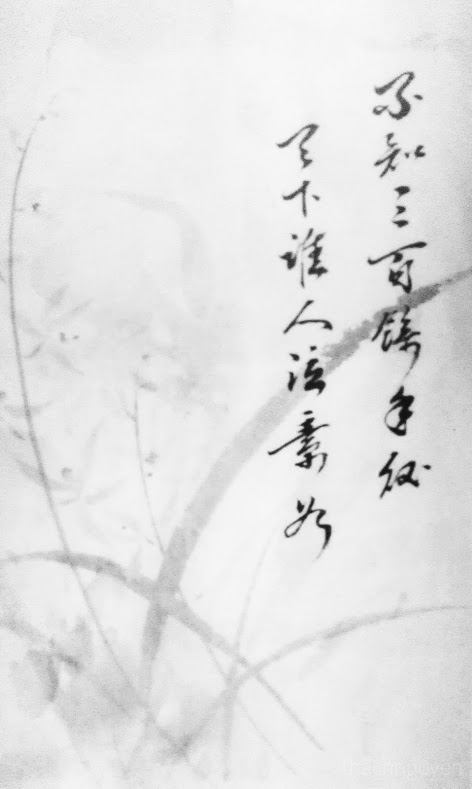 不知三百餘年後
天下誰人泣素如
thanhnguyen